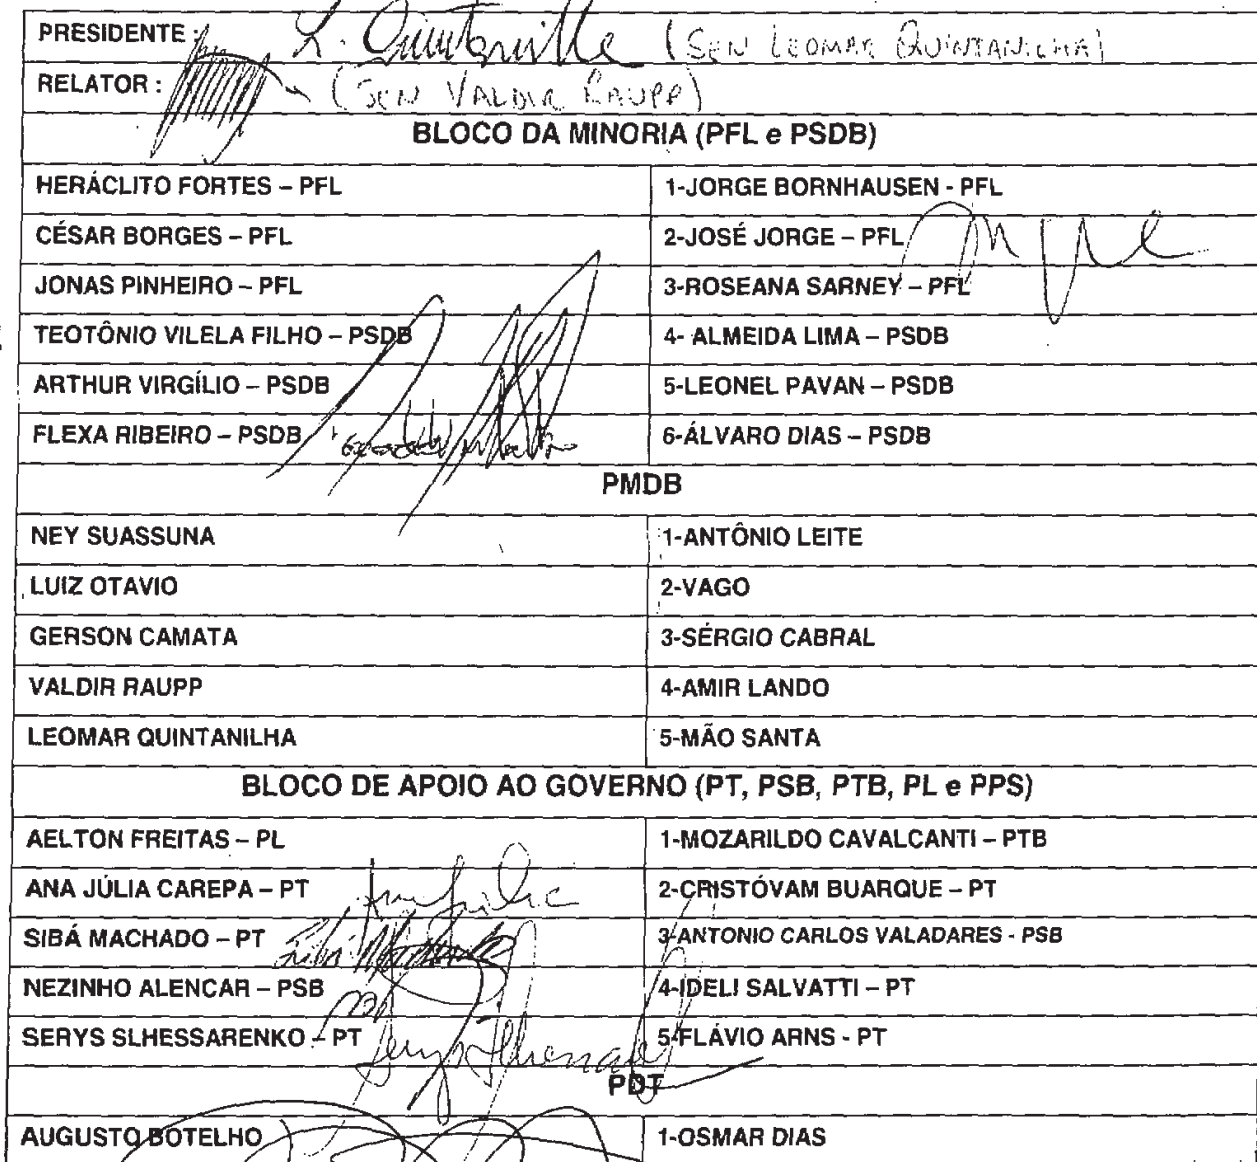 PRESIDENTE : L. Quintanilha (SEN LEOMAR QUINTANILHA)
RELATOR : (SEN VALDIR RAUPP)
BLOCO DA MINORIA (PFL e PSDB)
HERÁCLITO FORTES – PFL 1-JORGE BORNHAUSEN - PFL
CÉSAR BORGES – PFL 2-JOSÉ JORGE – PFL
JONAS PINHEIRO – PFL 3-ROSEANA SARNEY – PFL
TEOTÔNIO VILELA FILHO – PSDB 4- ALMEIDA LIMA – PSDB
ARTHUR VIRGÍLIO – PSDB 5-LEONEL PAVAN – PSDB
FLEXA RIBEIRO – PSDB 6-ÁLVARO DIAS – PSDB
PMDB
NEY SUASSUNA 1-ANTÔNIO LEITE
LUIZ OTAVIO 2-VAGO
GERSON CAMATA 3-SÉRGIO CABRAL
VALDIR RAUPP 4-AMIR LANDO
LEOMAR QUINTANILHA 5-MÃO SANTA
BLOCO DE APOIO AO GOVERNO (PT, PSB, PTB, PL e PPS)
AELTON FREITAS – PL 1-MOZARILDO CAVALCANTI – PTB
ANA JÚLIA CAREPA – PT Ana Júlia 2-CRISTÓVAM BUARQUE – PT
SIBÁ MACHADO – PT Sibá Machado 3-ANTONIO CARLOS VALADARES - PSB
NEZINHO ALENCAR – PSB 4-IDELI SALVATTI – PT
SERYS SLHESSARENKO – PT Serys Slhessarenko 5-FLÁVIO ARNS - PT
PDT
AUGUSTO BOTELHO 1-OSMAR DIAS